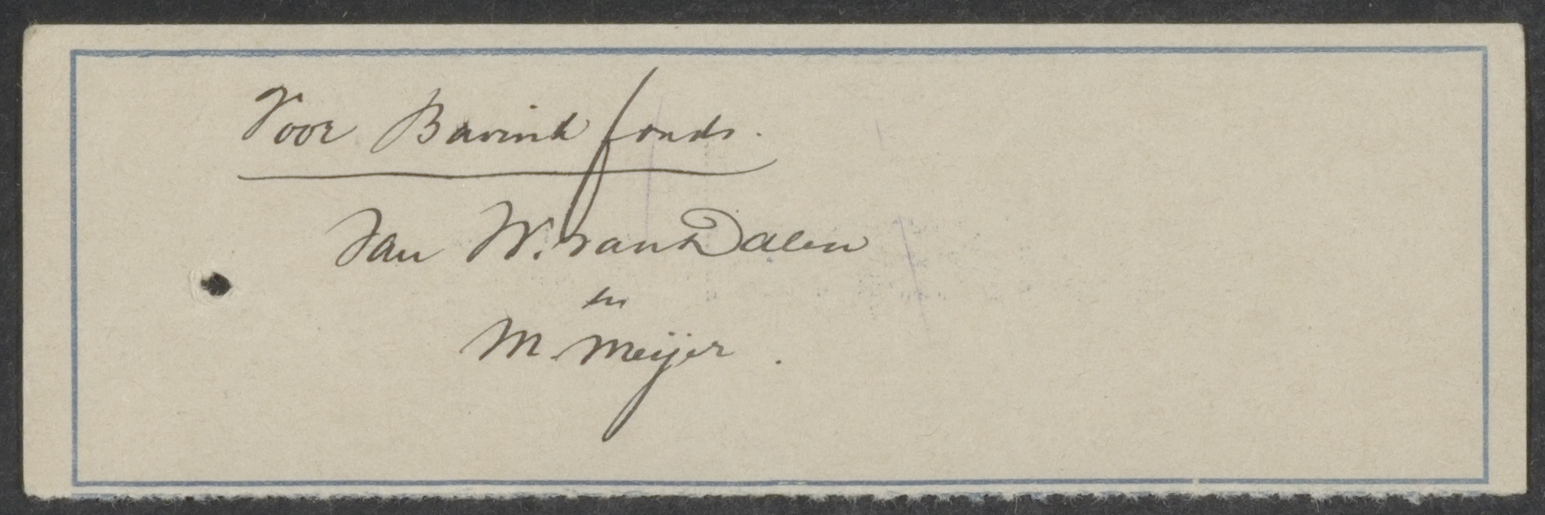 Voor Bavink fonds.
Jan W. van Dalen
en
M. Meijer.